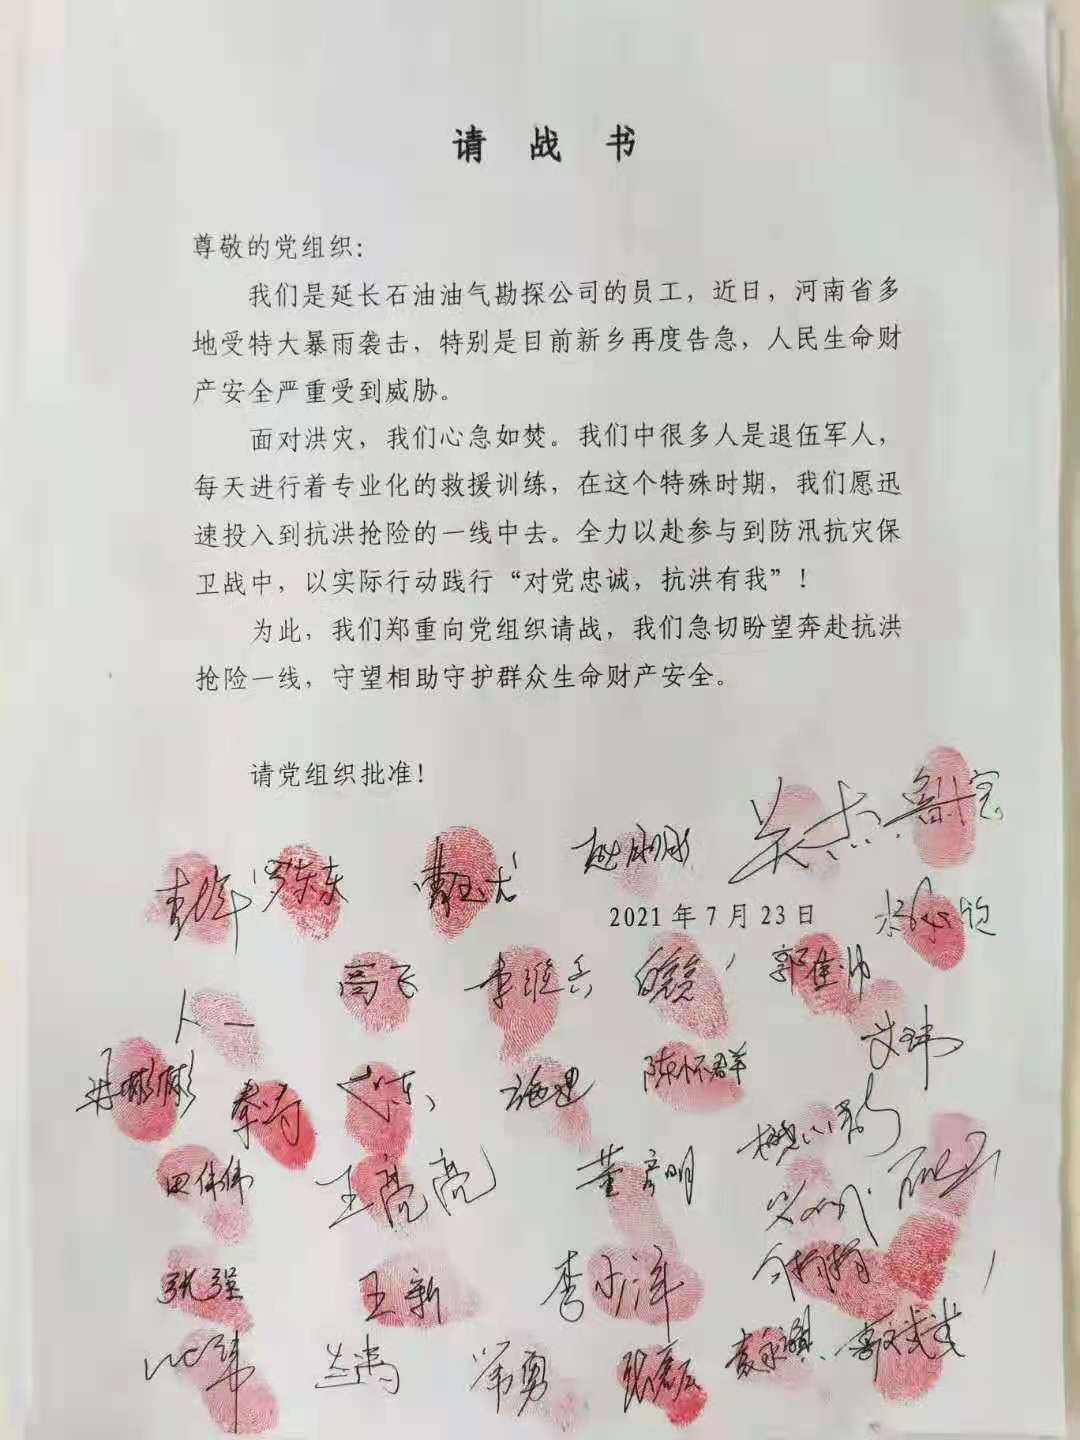 请战书
尊敬的党组织:
我们是延长石油油气勘探公司的员工，近日，河南省多
地受特大暴雨袭击，特别是目前新乡再度告急，人民生命财
产安全严重受到威胁。
面对洪灾，我们心急如焚。我们中很多人是退伍军人，
每天进行着专业化的救援训练，在这个特殊时期，我们愿迅
速投入到抗洪抢险的一线中去。全力以赴参与到防汛抗灾保
卫战中，以实际行动践行“对党忠诚，抗洪有我”！
为此，我们郑重向党组织请战，我们急切盼望奔赴抗洪
抢险一线，守望相助守护群众生命财产安全。
请党组织批准！
罗东东
2021年7月23日
高飞 李继兵 郭佳帅
陈怀群 艾玮
秦涛
田伟伟 王亮亮 董彦明
张强 王新 李小洋
常勇 张磊 袁永祺